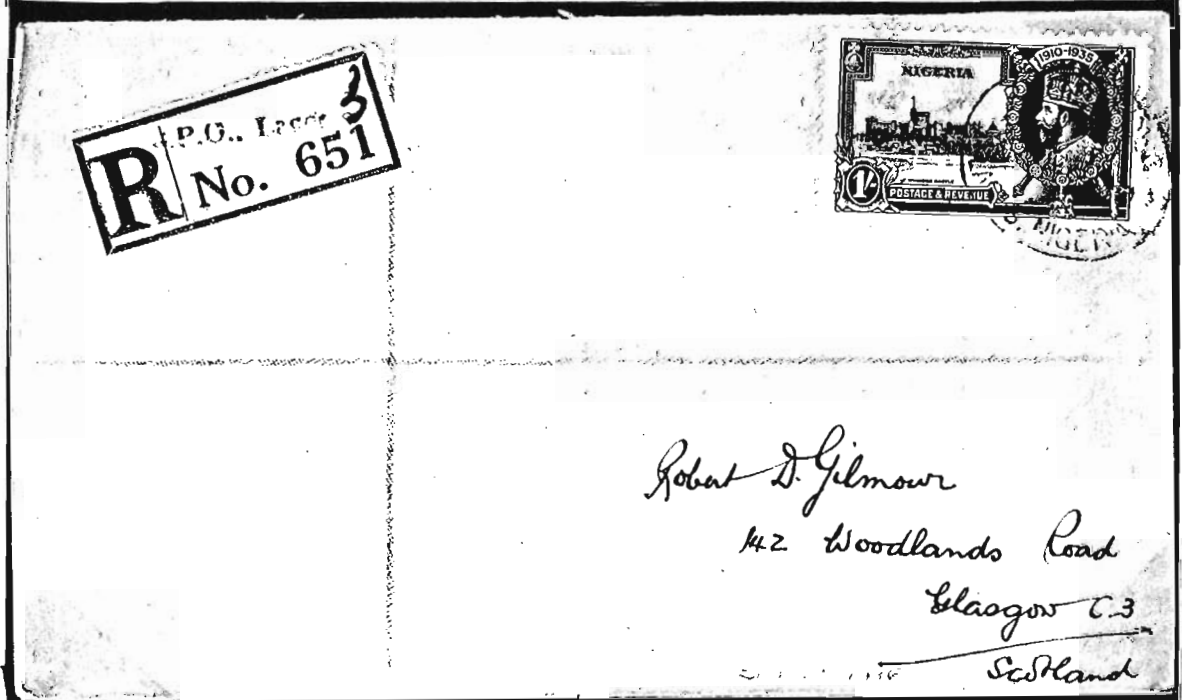 3
R
G.P.O., Lagos
No. 651
NIGERIA
1910-1935
1/-
POSTAGE & REVENUE
NIGERIA
Robert D. Gilmour
142 Woodlands Road
Glasgow C.3
Scotland